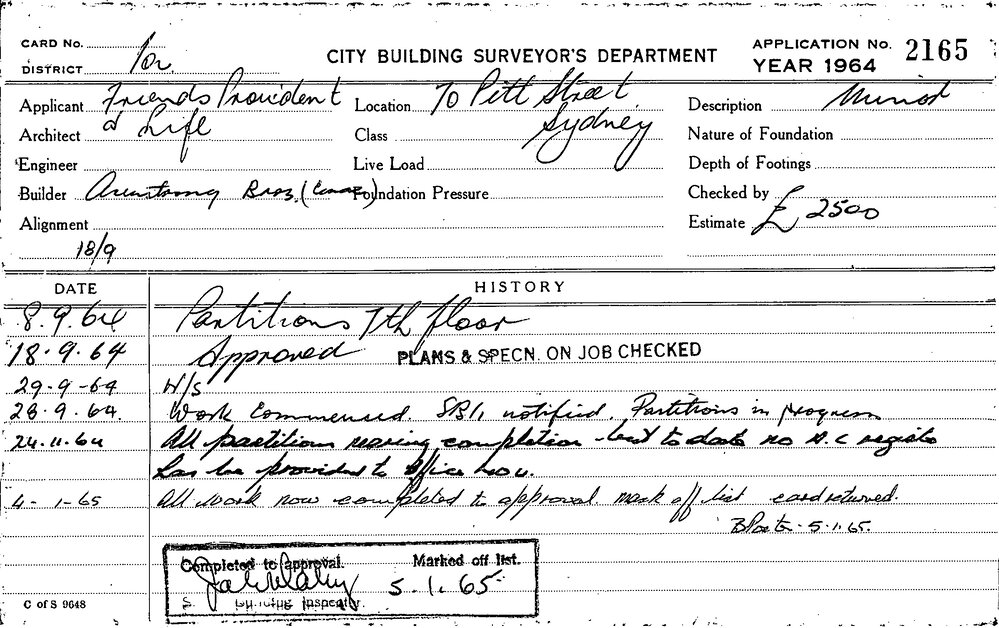 CARD No.
DISTRICT
CITY BUILDING SURVEYOR'S DEPARTMENT
APPLICATION No. 2165
YEAR 1964
Applicant Friends Provident
& Life
Architect
Engineer
Builder Armstrong Bros.
Alignment
18/9
Location 70 Pitt Street
Sydney
Class
Live Load
Foundation Pressure
Description Minor
Nature of Foundation
Depth of Footings
Checked by
Estimate £ 2500
DATE HISTORY
8.9.64 Partitions 7th floor
18.9.64 Approved PLANS & SPECN. ON JOB CHECKED
29-9-64 N/S
28.9.64. Work Commenced. notified. Partitions in progress
24.11.64 All partitions nearing completion but to date no A.C register
has be provided to Office now.
4-1-65 All work now completed to approval mark off list card returned.
5.1.65.
Completed to approval. Marked off list.
5.1.65
Building Inspector.
C of S 9648